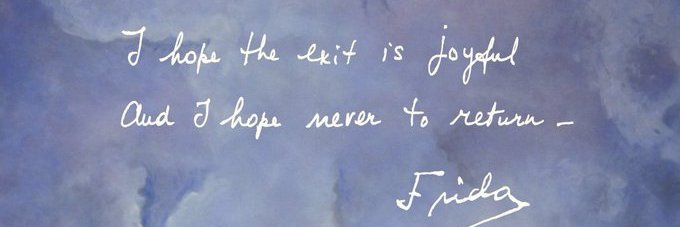 I hope the exit is joyful
And I hope never to return -
Frida